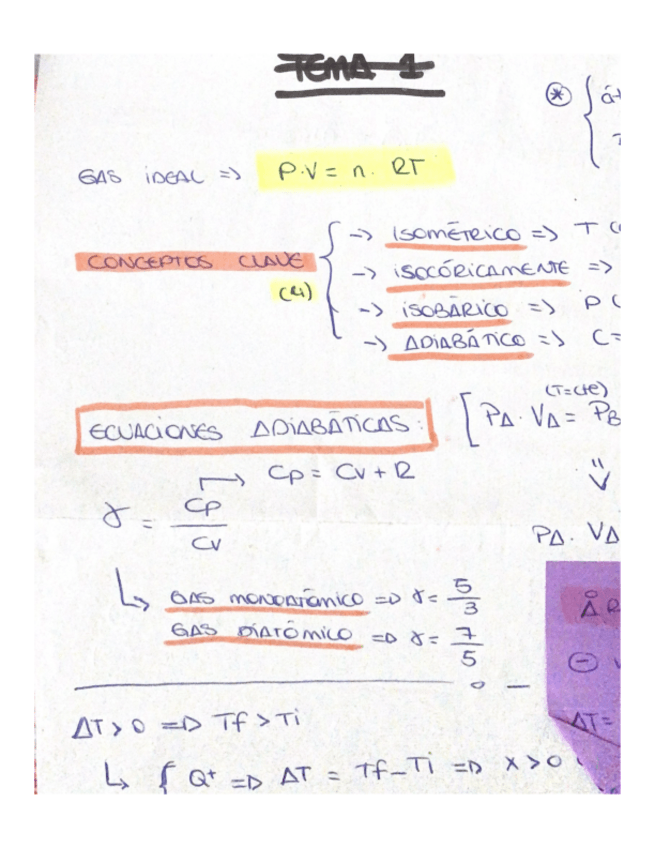 TEMA 1
GAS iDEAL => P·V = n. RT
CONCEPTOS CLAVE
-> ISOMÉTRICO => T
-> iSOCÓRICAMENTE =>
-> iSOBÁRICO => P
-> ADiABÁTICO => C=
ECUACIONES ADiABÁTICAS:
(T=cte)
[ PA · VA = PB
Cp = Cv + R
γ = Cp / Cv
PA · VA
GAS MONOATÓMICO => γ = 5/3
GAS DIATÓMICO => γ = 7/5
ΔT > 0 => Tf > Ti
ΔT=
{ Q+ => ΔT = Tf - Ti => X > 0